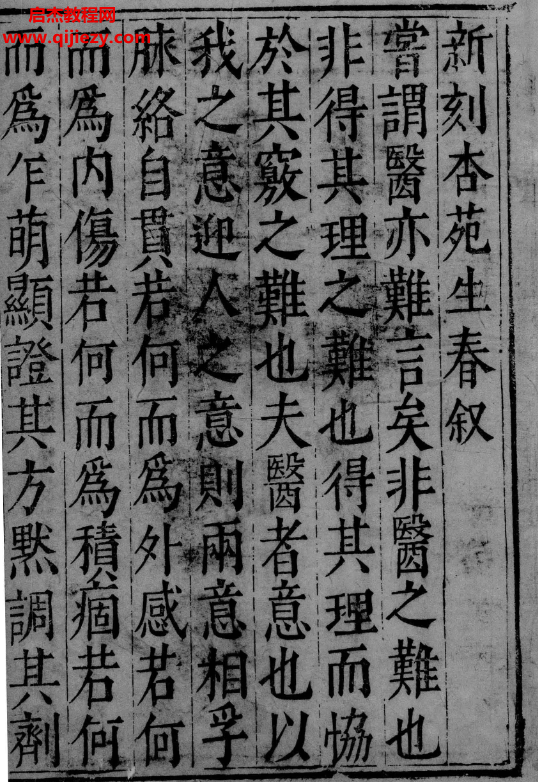 启杰教程网
www.qijiezy.com
新刻杏苑生春叙
嘗謂醫亦難言矣非醫之難也
非得其理之難也得其理而恊
於其竅之難也夫醫者意也以
我之意迎人之意則兩意相孚
脉絡自貫若何而爲外感若何
而爲内傷若何而爲積痼若何
而爲乍萌顯證其方黙調其劑